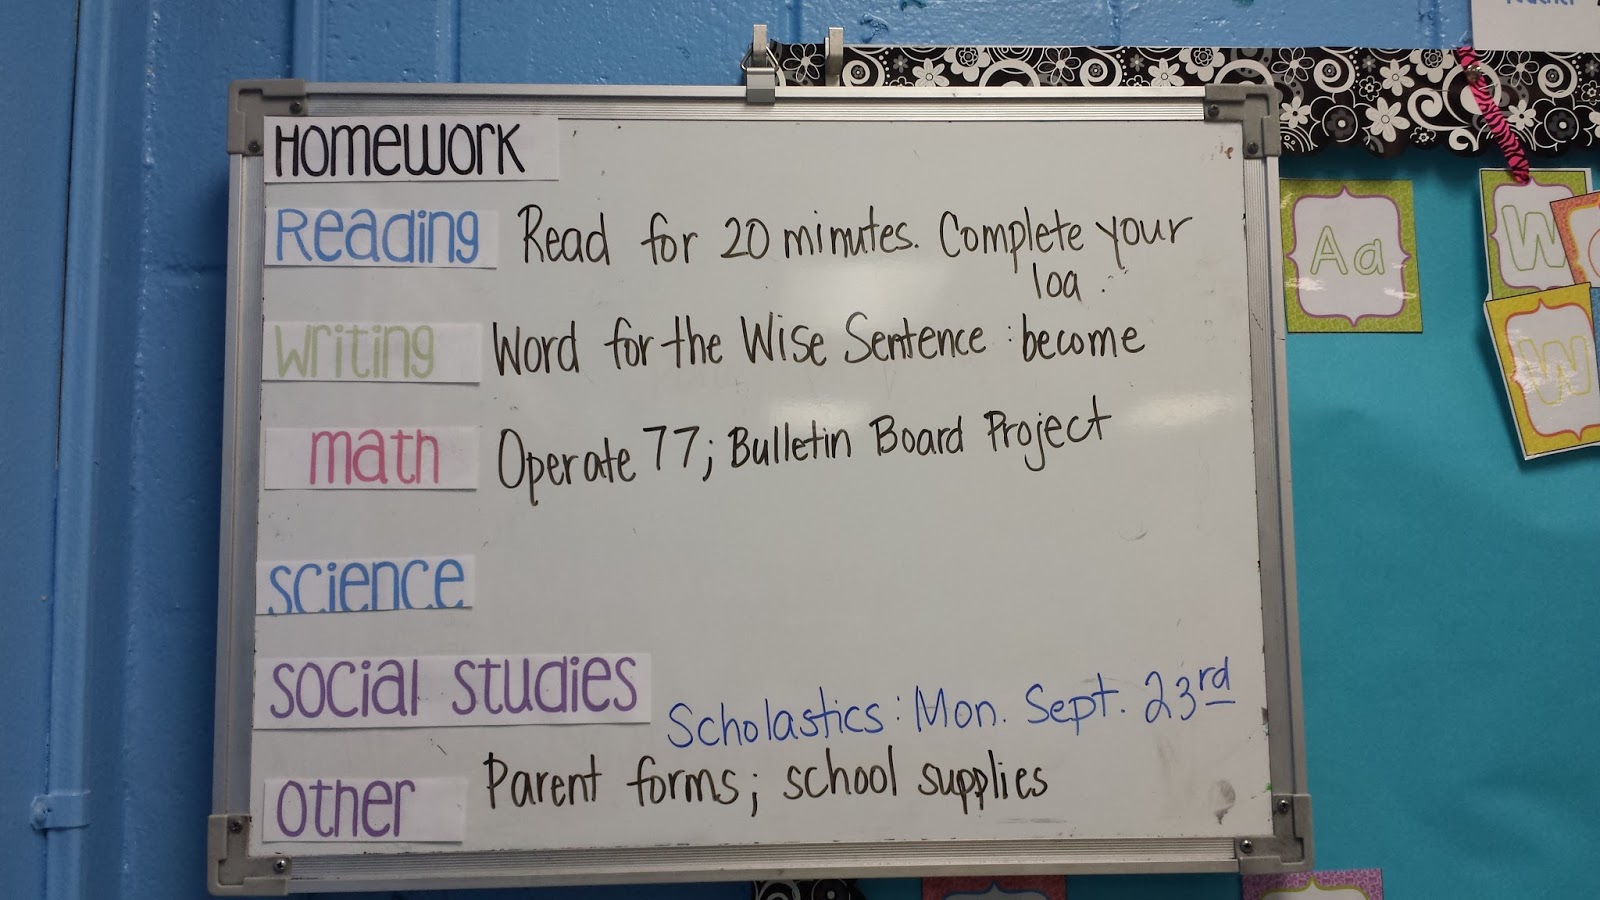 Homework
Reading Read for 20 minutes. Complete your
log.
writing Word for the Wise Sentence: become
math Operate 77; Bulletin Board Project
science
social studies Scholastics: Mon. Sept. 23rd
other Parent forms; school supplies
Aa
W
W